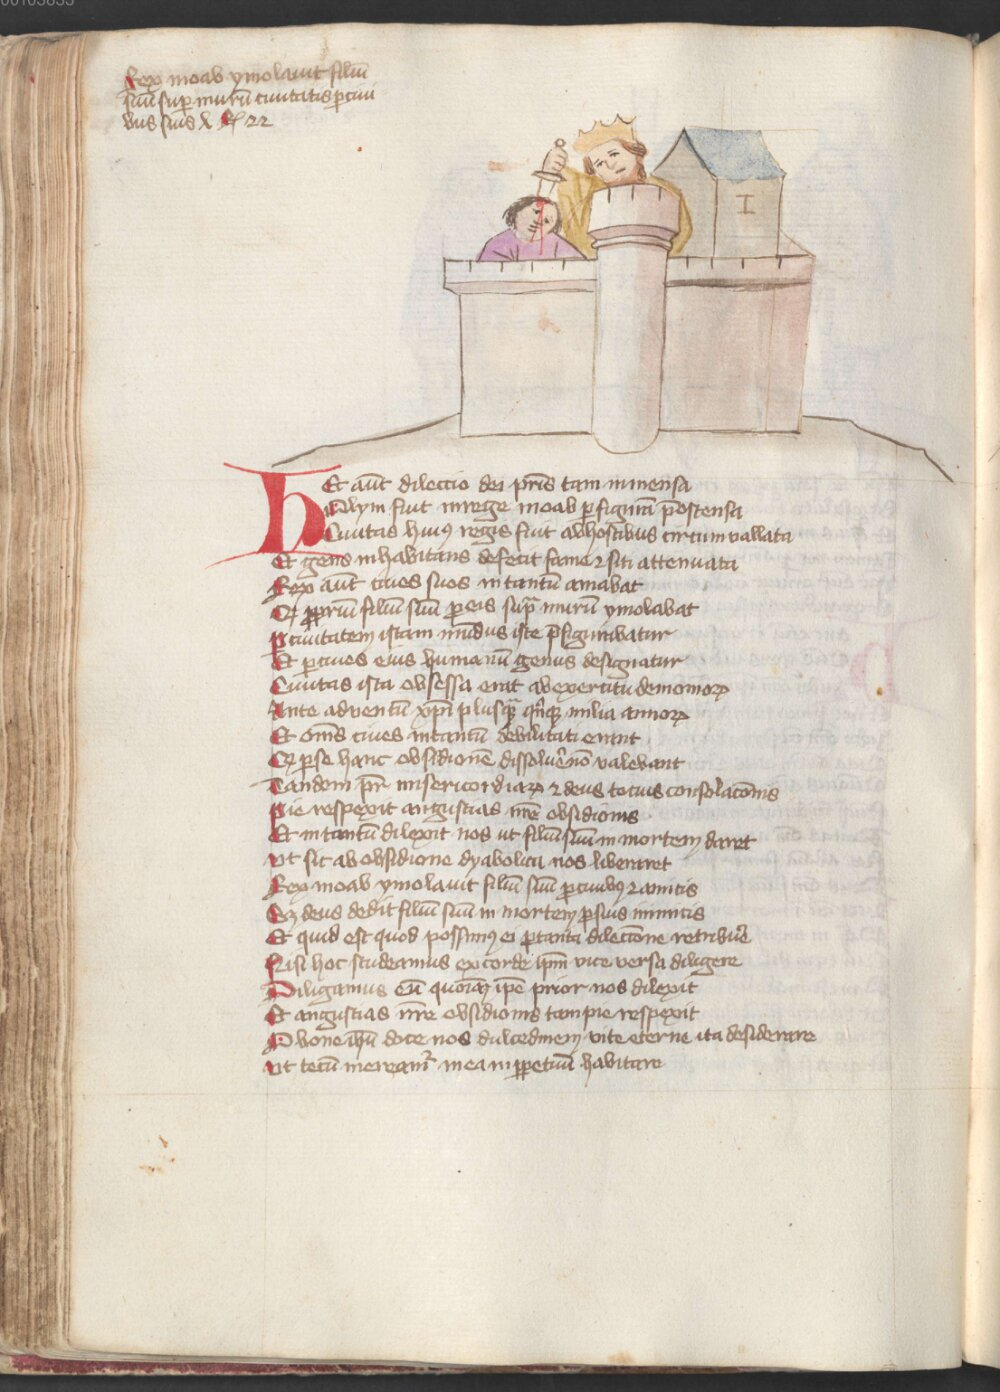 00103835
Rex moab ymolauit filiū
suū sup murū ciuitatis p ciui
bus suis
Het aūt dileccio dei pr̄is tam inmensa
Olym fuit in rege moab p figurā p̄ostensa
Ciuitas huiꝰ regis fuit ab hostibus circumuallata
Et gens inhabitans defecit fame ⁊ siti attenuata
Rex aūt ciues suos in tantū amabat
Qꝫ ꝓpriū filiū suū p eis supra murū ymolabat
P ciuitatem istam mūdus iste p̄figurabatur
Et p ciues eius humanū genus designatur
Ciuitas ista obsessa erat ab exercitu demonioꝝ
Ante aduentū xp̄i plusqᷓ qn̄qꝫ milia annoꝝ
Et om̄s ciues intantū debilitati erant
Qꝫ p se hanc obsidionē dissoluē nō valebant
Tandem pr̄ misericordiaꝝ ⁊ deus tocius consolacōnis
Pie respexit angustias nr̄e obsidionis
Et intantū dilexit nos ut filiū suū in mortem daret
Ut sic ab obsidione dyabolica nos liberaret
Rex moab ymolauit filiū suū p ciuibꝰ ⁊ amicis
Sꝫ deus dedit filiū suū in mortem p suis inimicis
Et quid est quod possumꝰ ei p tanta dilecione retribuē
Nisi hoc studeamus ex corde ip̄m vice versa diligere
Diligamus eū quoniā ip̄e prior nos dilexit
Et angustias nr̄e obsidionis tam pie respexit
O bone ihū doce nos dulcedinem vite eterne ita desiderare
Ut tecū mereamʳ in ea in ꝑpetuū habitare